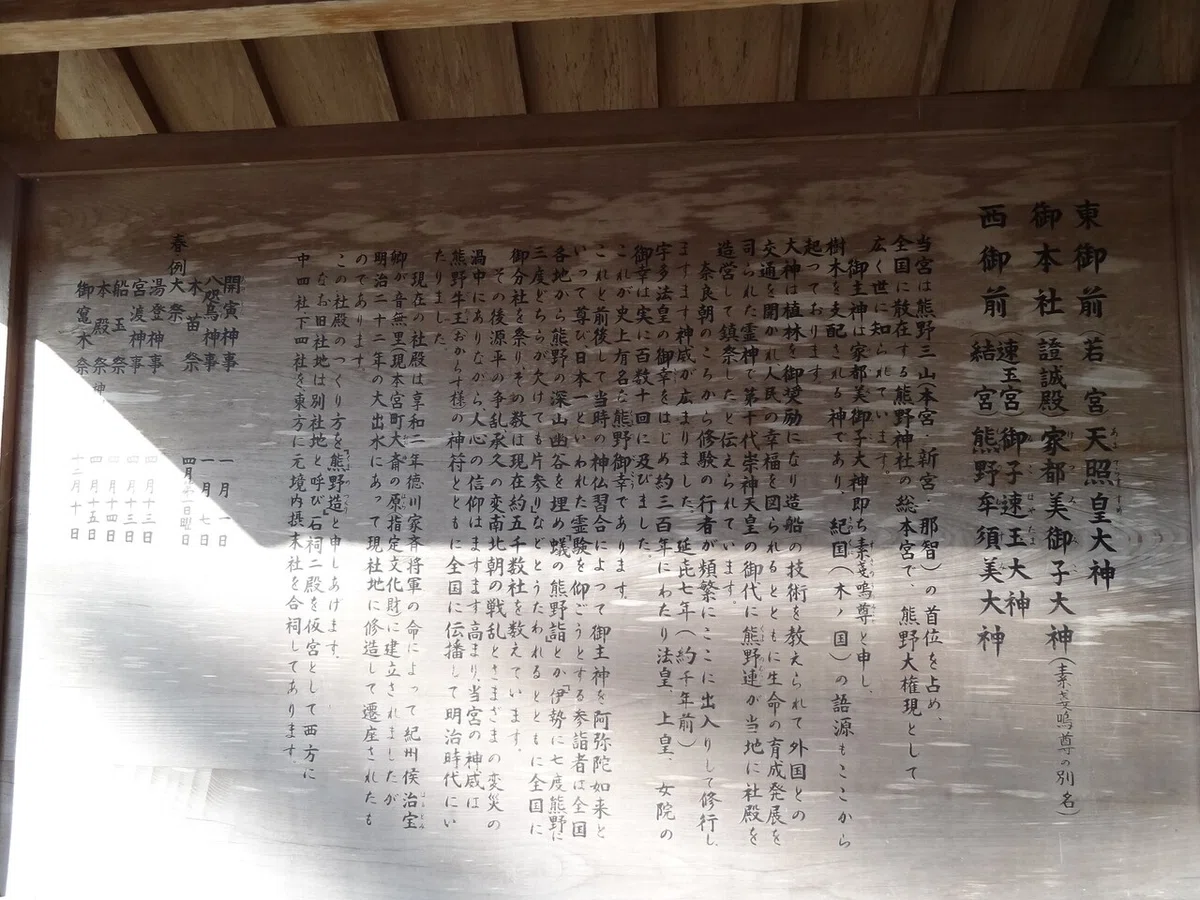 東御前(若宮)天照皇大神
御本社(證誠殿)家都美御子大神(素戔嗚尊の別名)
西御前
速玉宮 御子速玉大神
(結宮)熊野牟須美大神
当宮は熊野三山(本宮・新宮・那智)の首位を占め、
全国に散在する熊野神社の総本宮で、熊野大権現として
広く世に知られています。
御主神は家都美御子大神即ち素戔嗚尊と申し、
樹木を支配される神であり、紀国(木ノ国)の語源もここから
起っております。
大神は植林を御奨励になり造船の技術を教えられて外国との
交通を開かれ人民の幸福を図られるとともに生命の育成発展を
司られた霊神で第十代崇神天皇の御代に熊野連が当地に社殿を
造営して鎮祭したと伝えられています。
奈良朝のころから修験の行者が頻繁にここに出入りして修行し、
ますます神威が広まりました。延喜七年(約千年前)
宇多法皇の御幸をはじめ約三百年にわたり法皇、上皇、女院の
御幸は実に百数十回に及びました。
これが史上有名な熊野御幸であります。
これと前後して当時の神仏習合によって御主神を阿弥陀如来と
いって尊び日本一といわれた霊験を仰ごうとする参詣者は全国
各地から熊野の深山幽谷を埋め「蟻の熊野詣」とか「伊勢に七度熊野に
三度どちらが欠けても片参り」などとうたわれるとともに全国に
御分社を祭りその数は現在約五千数社を数えています。
その後源平の争乱承久の変南北朝の戦乱とさまざまの変災の
渦中にありながら人心の信仰はますます高まり、当宮の神威は
熊野牛王(おからす様の神符)とともに全国に伝播して明治時代にい
たりました。
現在の社殿は享和二年徳川家斉将軍の命によって紀州侯治宝
卿が音無里現本宮町大斎の原指定文化財に建立されましたが
明治二十二年の大出水にあって現社地に修造して遷座されたも
のであります。
この社殿のつくり方を熊野造と申しあげます。
なお旧社地は別社地と呼び石祠二殿を仮宮として西方に
中四社下四社を東方に元境内摂末社を合祠してあります。
開寅神事 一月一日
八咫烏神事 一月七日
木苗祭 四月第二日曜日
春例大祭
湯登神事 四月十三日
宮渡神事 四月十三日
船玉祭 四月十四日
本殿祭 四月十五日
御竃木祭 十二月十日